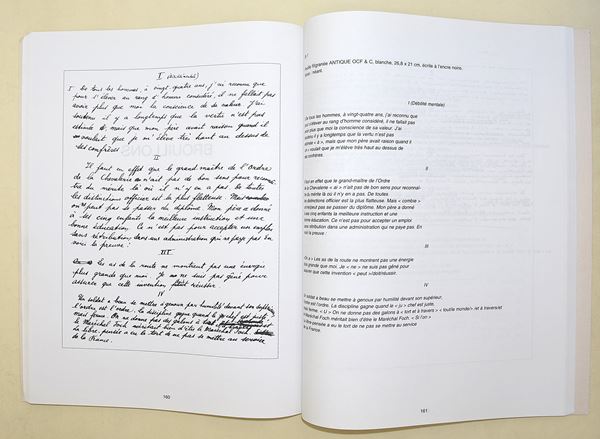 I (Débilité)
I De tous les hommes, à vingt-quatre ans, j'ai reconnu que
pour s'élever au rang d'homme considéré, il ne fallait pas
avoir plus que moi la conscience de sa valeur. J'ai
soutenu il y a longtemps que la vertu n'est pas
estimée mais que mon père avait raison quand il
voulait que je m'élève très haut au dessus de
ses confrères.
II
Il faut en effet que le grand maître de l'Ordre
de la Chevalerie n'ait pas de bon sens pour
du mérite là où il n'y en a pas. De toutes
les distinctions officier est la plus flatteuse. Mais
on ne peut pas se passer du diplôme. Mon père a donné
à ses cinq enfants la meilleure instruction et une
bonne éducation. Ce n'est pas pour accepter un emploi
sans rétribution dans une administration qui ne paye pas. En
voici la preuve :
III
Les as de la route ne montrent pas une énergie
plus grande que moi. Je ne suis pas gêné pour
assurer que cette invention réussir.
IV
Un soldat a beau se mettre à genoux par humilité devant son
l'ordre est l'ordre. La discipline gagne quand le chef est juste
mais ferme. On ne donne pas des galons à tout
le Maréchal Foch méritait bien d'être le Maréchal Foch.
La libre pensée a eu le tort de ne pas se mettre au service
de la France.
160
filigranée ANTIQUE OCF & C, blanche, 26,8 x 21 cm, écrite à l'encre noire.
: néant.
I (Débilité mentale)
De tous les hommes, à vingt-quatre ans, j'ai reconnu que
s'élever au rang d'homme considéré, il ne fallait pas
plus que moi la conscience de sa valeur. J'ai
il y a longtemps que la vertu n'est pas
« a », mais que mon père avait raison quand il
voulait que je m'élève très haut au dessus de
confrères.
II
en effet que le grand-maître de l'Ordre
Chevalerie « ai » n'ait pas de bon sens pour reconnaî-
mérite là où il n'y en a pas. De toutes
distinctions officier est la plus flatteuse. Mais « combe »
peut pas se passer de diplôme. Mon père a donné
cinq enfants la meilleure instruction et une
éducation. Ce n'est pas pour accepter un emploi
rétribution dans une administration qui ne paye pas. En
la preuve
III
« On a » Les as de la route ne montrent pas une énergie
grande que moi. Je « ne » ne suis pas gêné pour
que cette invention « peut »/doit/réussir.
IV
soldat a beau se mettre à genoux par humilité devant son supérieur,
est l'ordre. La discipline gagne quand le « ju » chef est juste,
ferme. « U » On ne donne pas des galons à « tort et à travers »
Maréchal Foch méritait bien d'être le Maréchal Foch. « Si l'on »
libre-pensée a eu le tort de ne pas se mettre au service
la France.
161